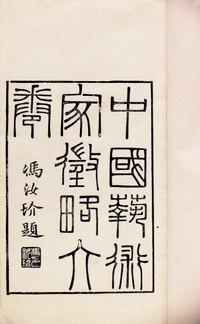 中國藝術
家徵略六
卷
馮汝玠題